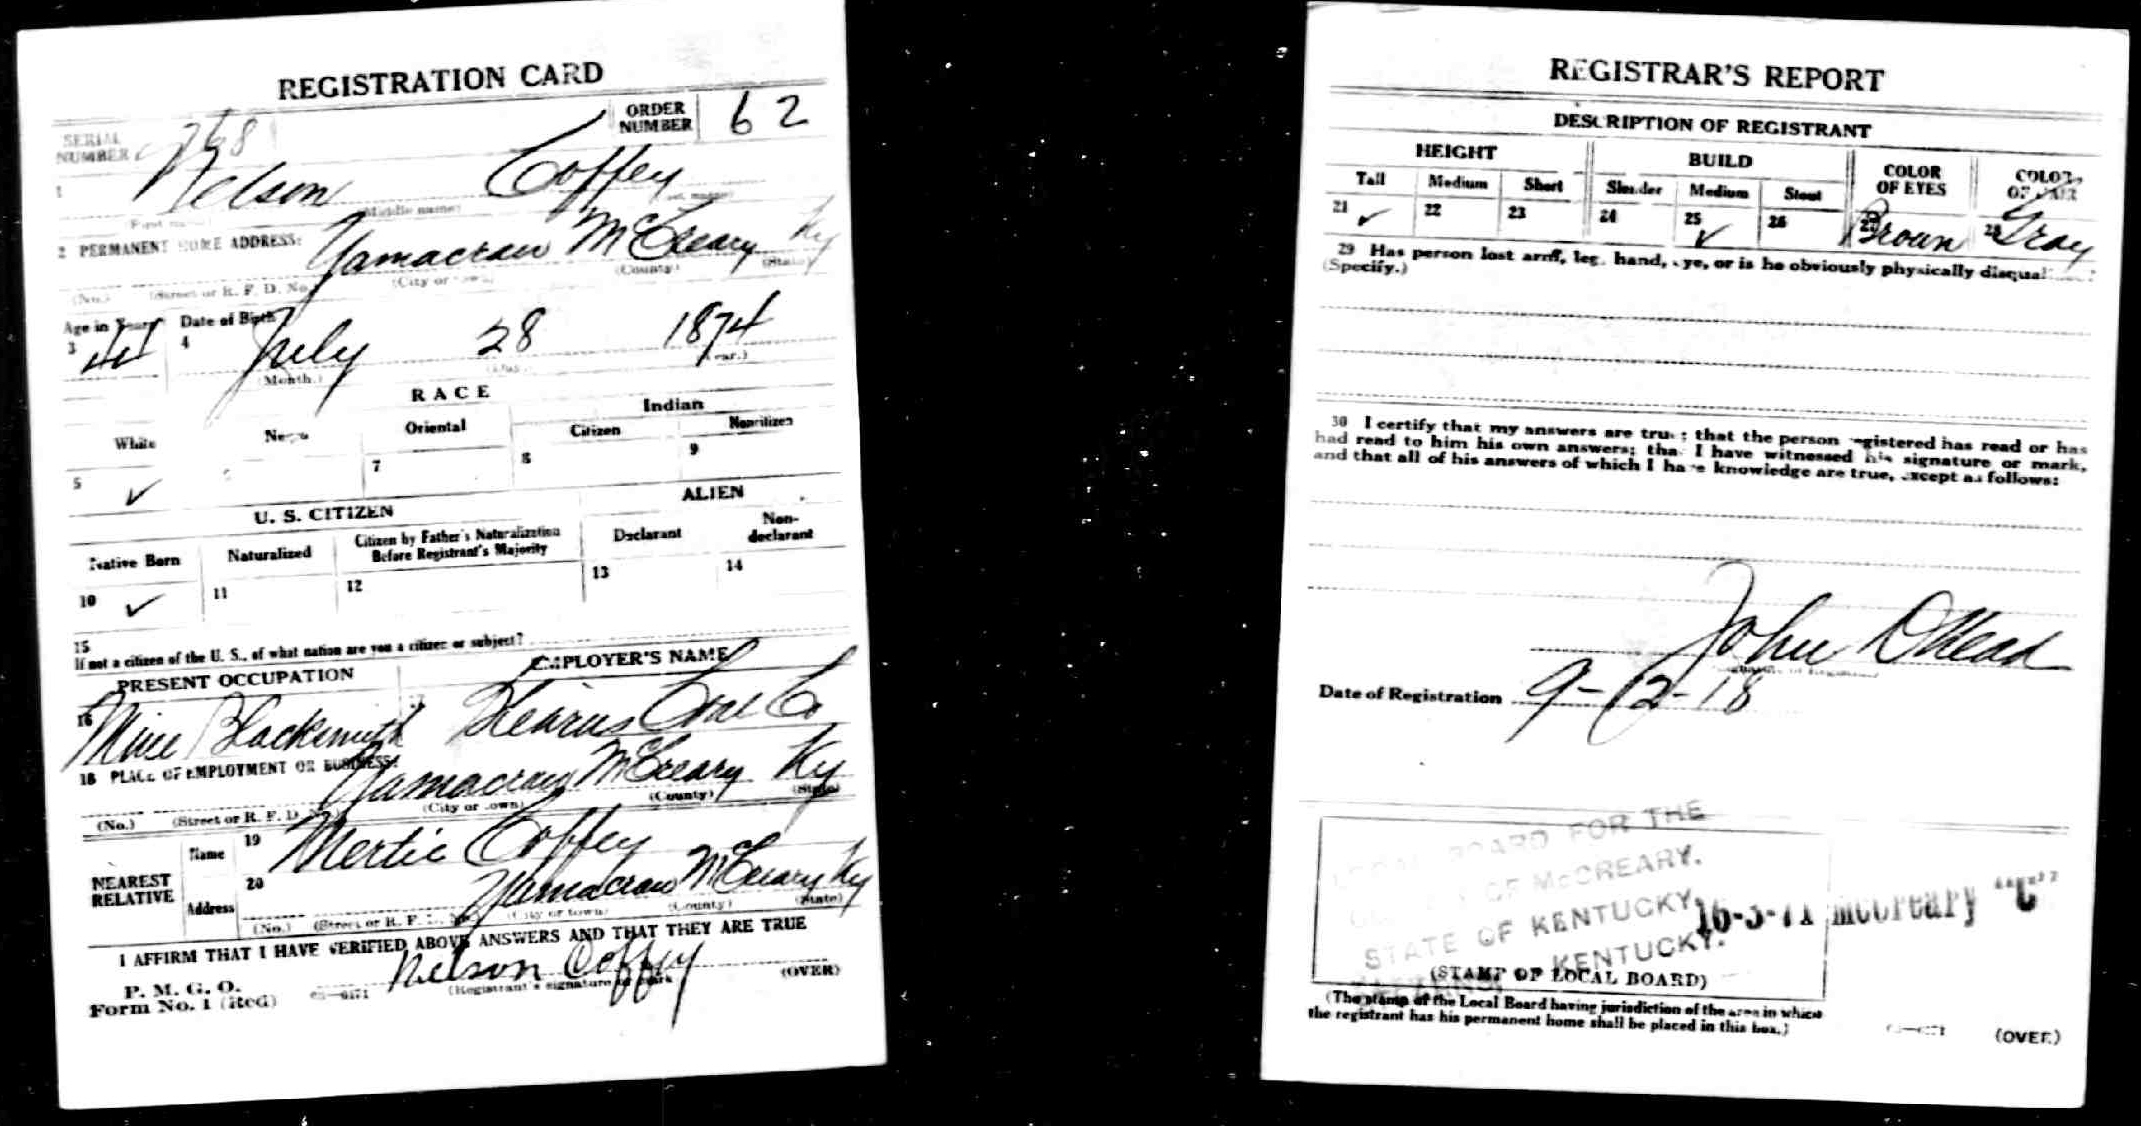 REGISTRATION CARD
SERIAL NUMBER 768 ORDER NUMBER 62
1 Nelson Coffey
First name Middle name
2 PERMANENT HOME ADDRESS: Yamacraw McCreary Ky
(No.) (Street or R. F. D. No.) (City or town) (County) (State)
Age in Years Date of Birth
3 44 4 July 28 1874
(Month.) (Day.) (Year.)
RACE
White Negro Oriental Indian
Citizen Noncitizen
5 ✓ 7 8 9
U. S. CITIZEN ALIEN
Native Born Naturalized Citizen by Father's Naturalization Before Registrant's Majority Declarant Non-declarant
10 ✓ 11 12 13 14
15
If not a citizen of the U. S., of what nation are you a citizen or subject?
PRESENT OCCUPATION EMPLOYER'S NAME
16 Mine Blacksmith 17 Stearns Coal Co
18 PLACE OF EMPLOYMENT OR BUSINESS: Yamacraw McCreary Ky
(No.) (Street or R. F. D. No.) (City or town) (County) (State)
NEAREST RELATIVE
Name 19 Mertie Coffey
Address 20 Yamacraw McCreary Ky
(No.) (Street or R. F. D. No.) (City or town) (County) (State)
I AFFIRM THAT I HAVE VERIFIED ABOVE ANSWERS AND THAT THEY ARE TRUE
P. M. G. O.
Form No. 1 (Red) 03—6171 Nelson Coffey
(Registrant's signature or mark) (OVER)
REGISTRAR'S REPORT
DESCRIPTION OF REGISTRANT
HEIGHT BUILD COLOR OF EYES COLOR OF HAIR
Tall Medium Short Slender Medium Stout
21 ✓ 22 23 24 25 ✓ 26 27 Brown 28 Gray
29 Has person lost arm, leg, hand, eye, or is he obviously physically disqualified?
(Specify.)
30 I certify that my answers are true; that the person registered has read or has
had read to him his own answers; that I have witnessed his signature or mark,
and that all of his answers of which I have knowledge are true, except as follows:
John
Date of Registration 9-12-18
LOCAL BOARD FOR THE
COUNTY OF McCREARY.
STATE OF KENTUCKY
KENTUCKY.
16-3-71 McCreary "C"
(STAMP OF LOCAL BOARD)
(The stamp of the Local Board having jurisdiction of the area in which
the registrant has his permanent home shall be placed in this box.)
(OVER)